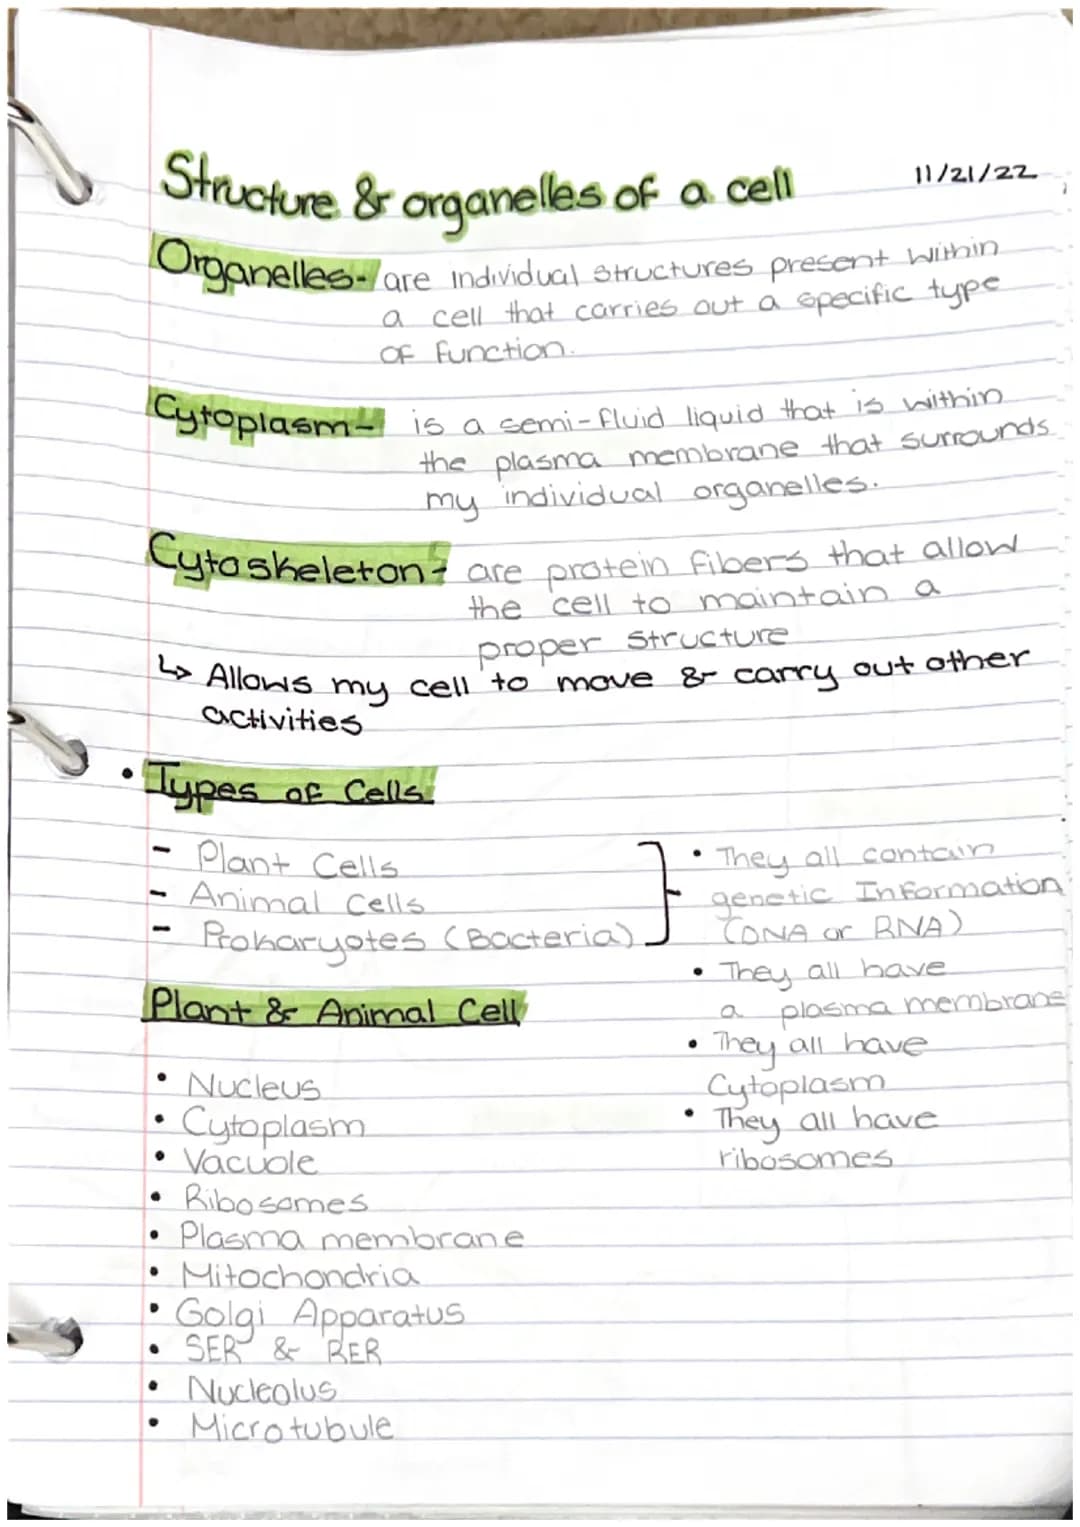 Structure & organelles of a cell
11/21/22
Organelles- are individual structures present within
a cell that carries out a specific type
of function.
Cytoplasm- is a semi-fluid liquid that is within
the plasma membrane that surrounds
my individual organelles.
Cytoskeleton- are protein fibers that allow
the cell to maintain a
proper structure
↳ Allows my cell to move & carry out other
activities
• Types of Cells
- Plant Cells
- Animal Cells
- Prokaryotes (Bacteria)
• They all contain
genetic Information
(DNA or RNA)
• They all have
a plasma membrane
• They all have
Cytoplasm
• They all have
ribosomes
Plant & Animal Cell
• Nucleus
• Cytoplasm
• Vacuole
• Ribosomes
• Plasma membrane
• Mitochondria
• Golgi Apparatus
• SER & RER
• Nucleolus
• Microtubule